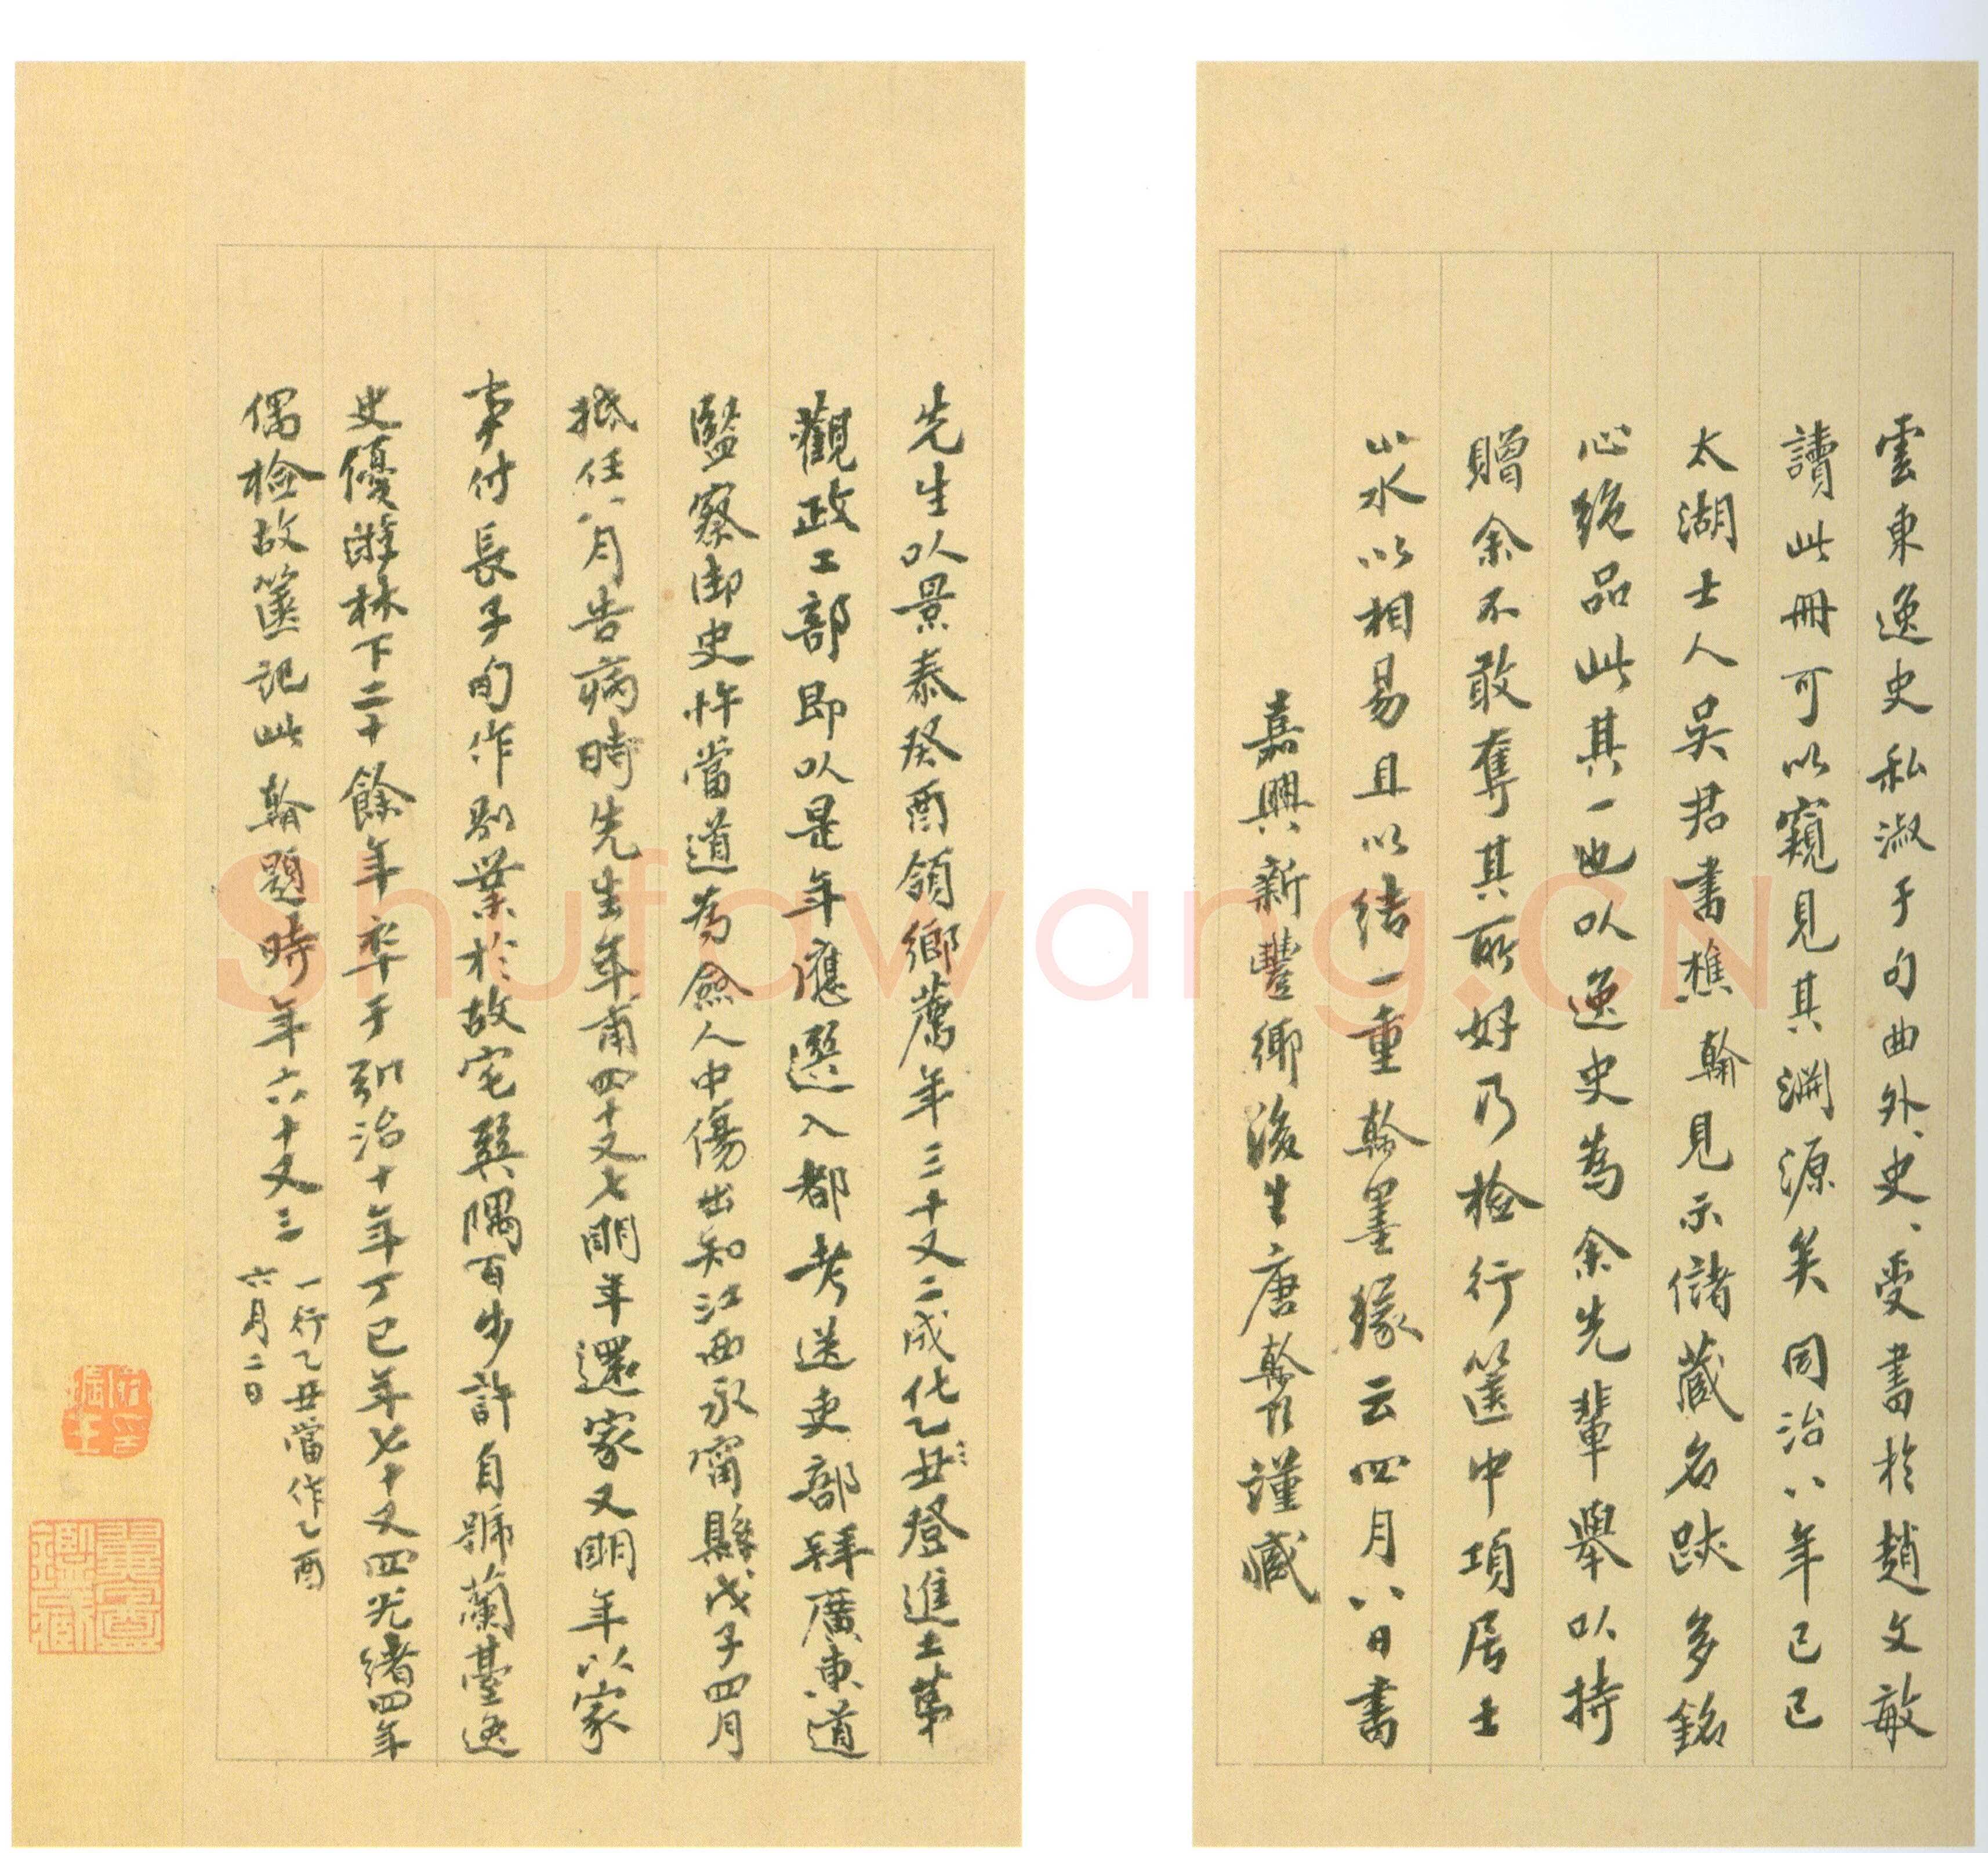 雲東逸史私淑于句曲外史、史、受書於趙文敏
讀此冊可以窺見其淵源矣同治八年己巳
太湖士人吳君書樵翰見示儲藏名跡多銘
心絕品此其一也以逸史為余先輩舉以持
贈余不敢奪其所好乃檢行篋中項居士
山水以相易且以結一重翰墨緣云四月八日書
嘉興新豐鄉後生唐翰題謹藏
先生以景泰癸酉領鄉薦年三十又二成化乙丑登進士第
觀政工部即以是年應選入都考送吏部拜廣東道
監察御史忤當道為僉人中傷出知江西永甯縣戊子四月
抵任八月告病時先生年甫四十又七明年還家又明年以家
事付長子旬作別業於故宅巽隅百步許自號蘭臺逸
史優游林下二十餘年卒于弘治十年丁巳年七十又四光緒四年
偶檢故篋記此翰題時年六十又三
一行乙丑當作乙酉
六月二日
Shufawang.CN